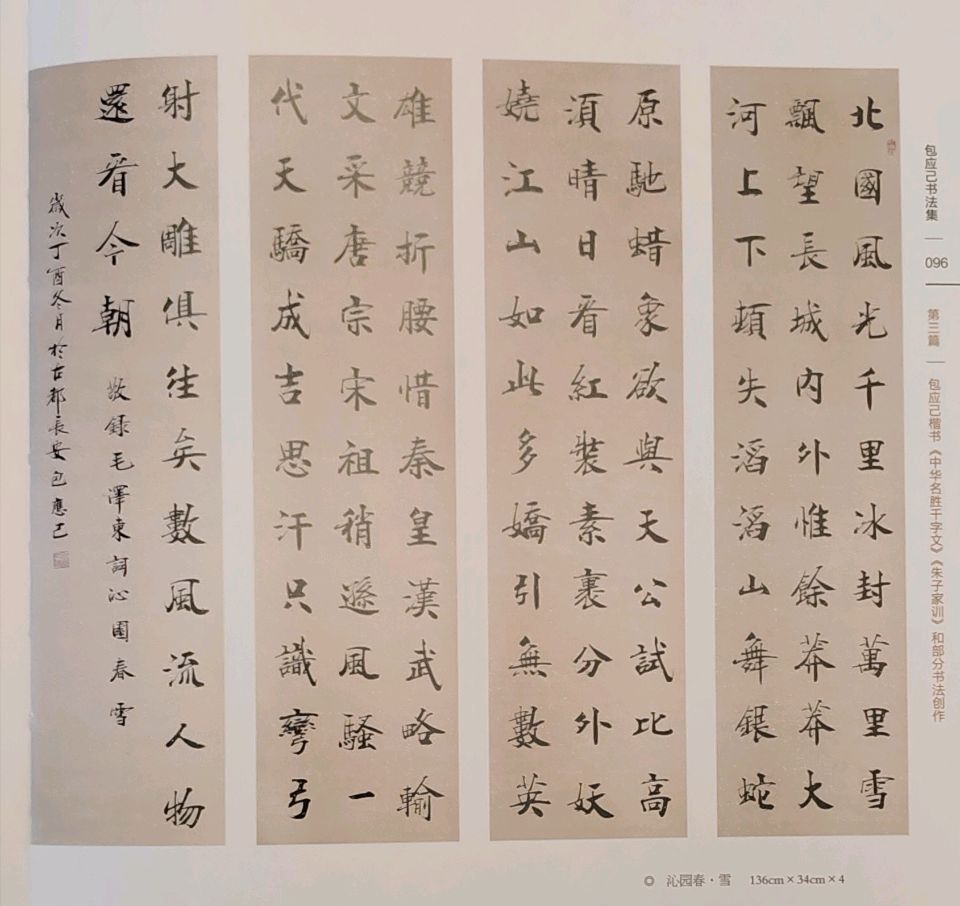 北國風光千里冰封萬里雪
飄望長城內外惟餘莽莽大
河上下頓失滔滔山舞銀蛇
原馳蜡象欲與天公試比高
湏晴日看紅裝素裹分外妖
嬈江山如此多嬌引無數英
雄競折腰惜秦皇漢武略輸
文采唐宗宋祖稍遜風騷一
代天驕成吉思汗只識彎弓
射大雕俱往矣數風流人物
還看今朝
敬錄毛澤東詞沁園春雪
歲次丁酉冬月於古都長安包應己
包应己书法集
096
第三篇
包应己楷书《中华名胜千字文》《朱子家训》和部分书法创作
◎ 沁园春·雪 136cm×34cm×4